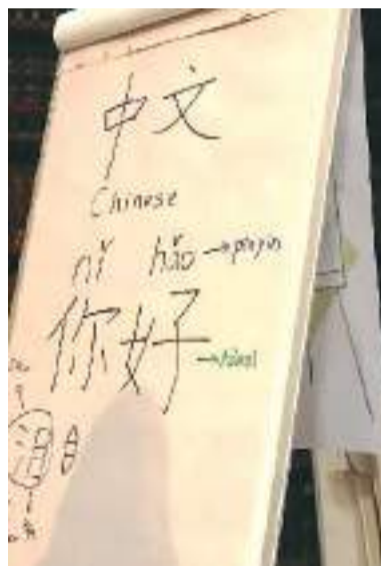 中文
Chinese
nǐ hǎo → pinyin
你好